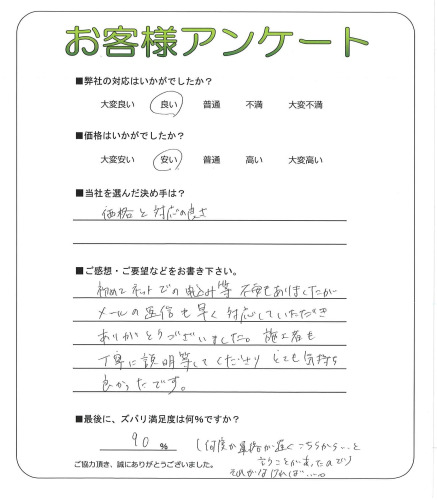 お客様アンケート
■弊社の対応はいかがでしたか?
大変良い 良い 普通 不満 大変不満
■価格はいかがでしたか?
大変安い 安い 普通 高い 大変高い
■当社を選んだ決め手は?
価格と対応の良さ
■ご感想・ご要望などをお書き下さい。
初めてネットでの申込み等 不安もありましたが
メールの返信も早く対応していただき
ありがとうございました。施工者も
丁寧に説明等してくださり とても気持ち
良かったです。
■最後に、ズバリ満足度は何%ですか?
90 %
(何度か連絡が遅くこちらから…と
いうことがあったので)
それがなければ…。
ご協力頂き、誠にありがとうございました。